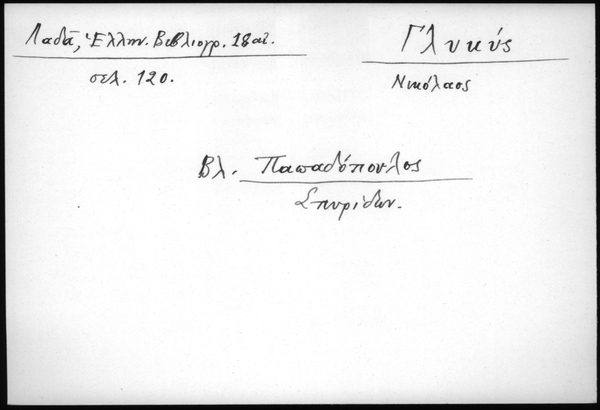 Λαδᾶ, Ἑλλην. Βιβλιογρ. 18 αἰ.
σελ. 120.
Γλυκύς
Νικόλαος
Βλ. Παπαδόπουλος
Σπυρίδων.